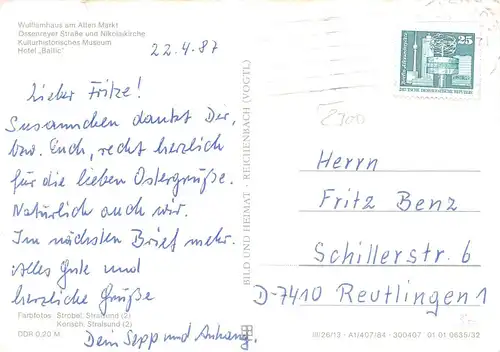 Wulflamhaus am Alten Markt
Ossenreyer Straße und Nikolaikirche
Kulturhistorisches Museum
Hotel „Baltic“
22.4.87
Lieber Fritze!
Susannchen dankt Dir,
bzw. Euch, recht herzlich
für die lieben Ostergrüße.
Natürlich auch wir.
Im nächsten Brief mehr.
Alles Gute und
herzliche Grüße
Dein Sepp und Anhang.
Farbfotos: Strobel, Stralsund (2)
Korsch, Stralsund (2)
DDR 0,20 M
BILD UND HEIMAT · REICHENBACH (VOGTL)
25
DEUTSCHE DEMOKRATISCHE REPUBLIK
Herrn
Fritz Benz
Schillerstr. 6
D-7410 Reutlingen 1
III/26/13 · A1/407/84 · 300407 01 01 0635/32